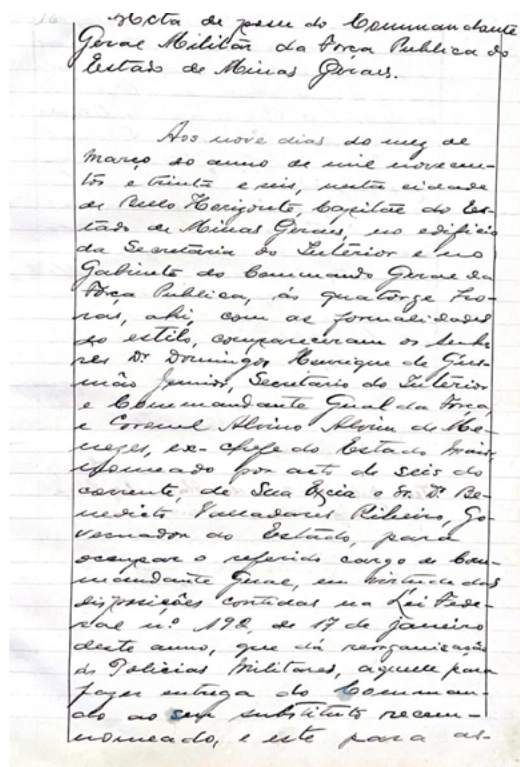 Acta de posse do Commandante
Geral Militar da Força Publica do
Estado de Minas Geraes.
Aos nove dias do mez de
Março do anno de mil novecen-
tos e trinta e seis, nesta cidade
de Bello Horizonte, Capital do Es-
tado de Minas Geraes, no edificio
da Secretaria do Interior e no
Gabinete do Commando Geral da
Força Publica, ás quatorze ho-
ras, ahi, com as formalidades
do estilo, compareceram os senho-
res Dr. Domingos Henrique de Gus-
mão Junior, Secretario do Interior
e Commandante Geral da Força,
e Coronel Alvino Alvim de Me-
nezes, ex-chefe do Estado Maior,
nomeado por acto de seis do
corrente, de Sua Excia o Sr. Dr. Be-
nedicto Valladares Ribeiro, Go-
vernador do Estado, para
occupar o referido cargo de Com-
mandante Geral, em virtude das
disposições contidas na Lei Fede-
ral n.º 192, de 17 de janeiro
deste anno, que dá reorganização
ás Policias Militares, aquelle para
fazer entrega do Comman-
do ao seu substituto recem-
nomeado, e este para as-